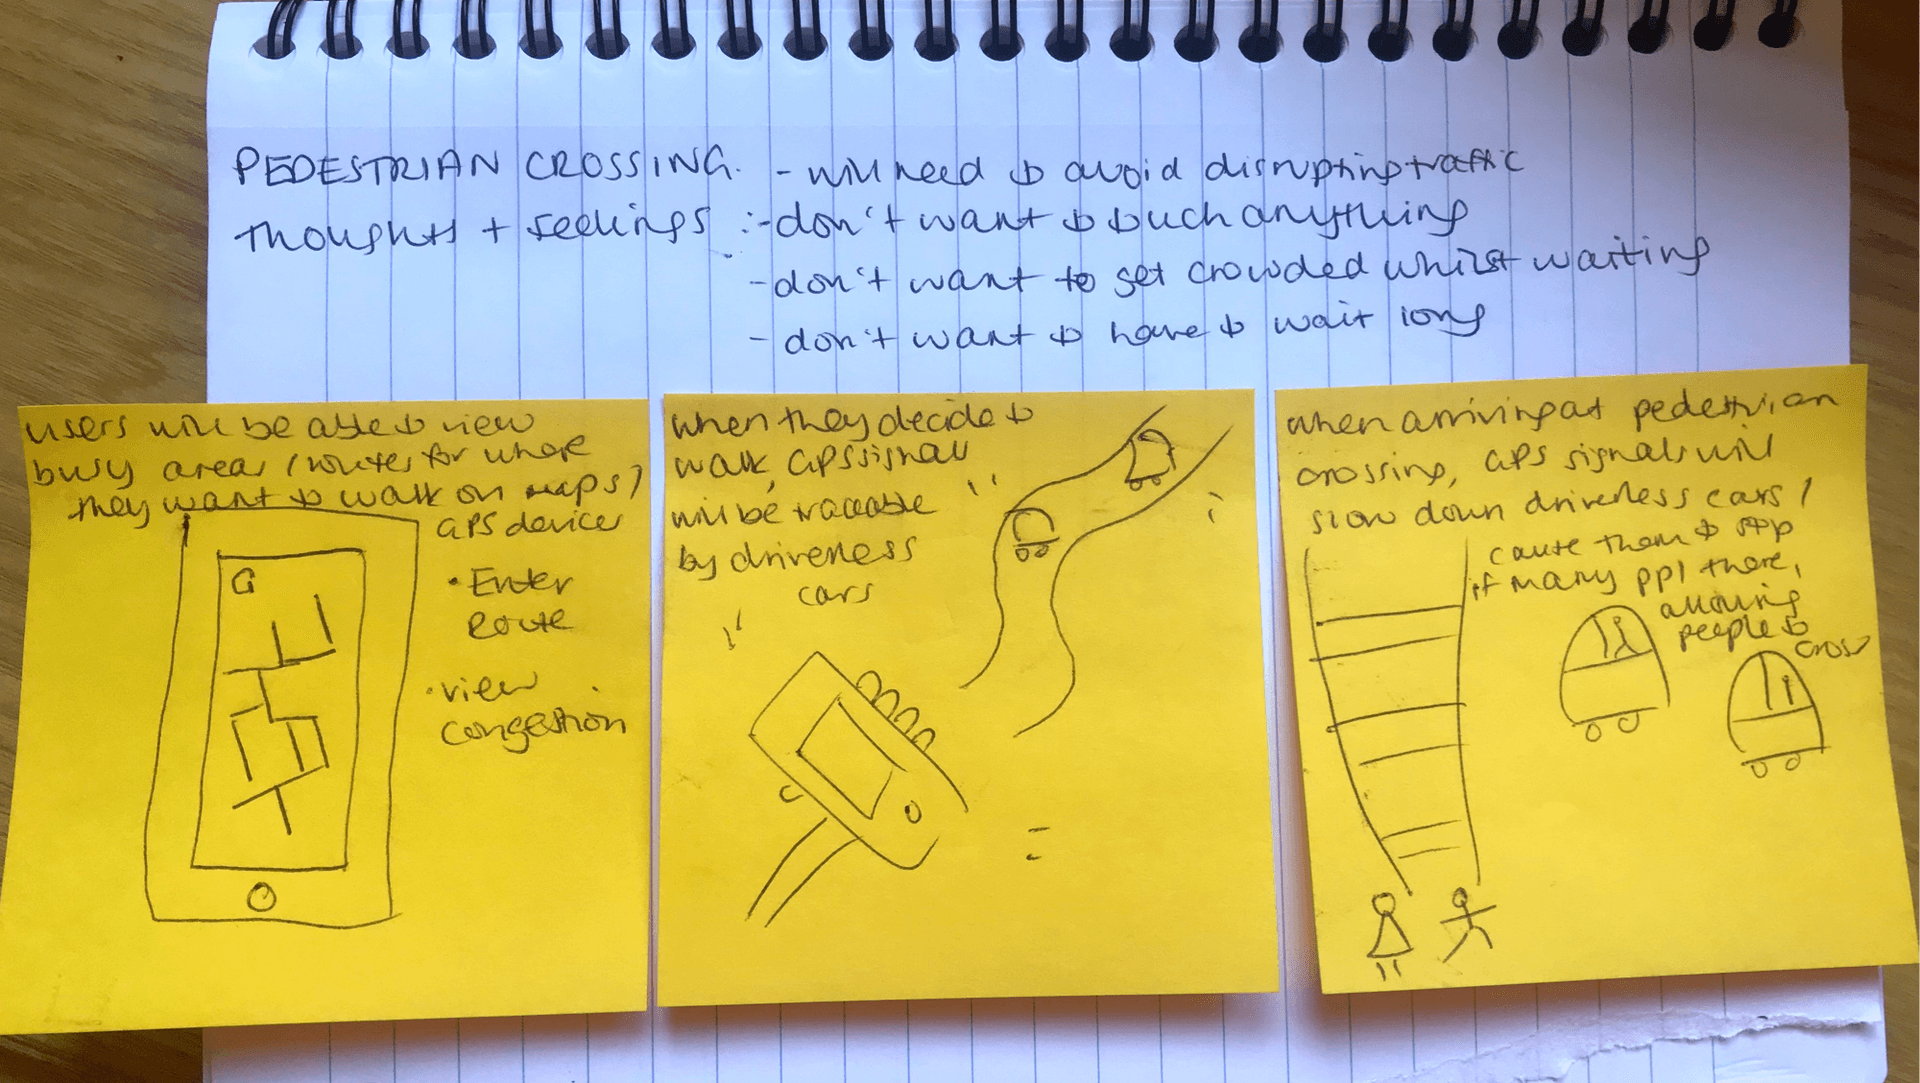 PEDESTRIAN CROSSING. - will need to avoid disrupting traffic
Thoughts + feelings :- don't want to touch anything
- don't want to get crowded whilst waiting
- don't want to have to wait long
users will be able to view
busy areas / routes for where
they want to walk on maps /
GPS devices
• Enter
Route
• view
congestion
G
when they decide to
walk, GPS signal
will be traceable
by driverless
cars
when arriving at pedestrian
crossing, GPS signals will
slow down driverless cars /
cause them to stop
if many ppl there,
allowing
people to
cross